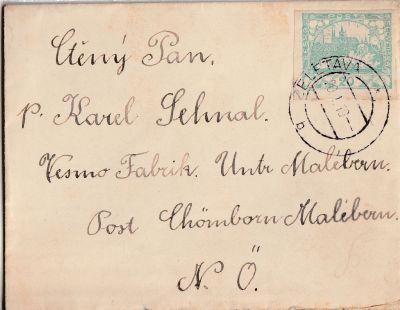 Ctěný Pan.
p. Karel Sehnal.
Vesmo Fabrik. Untr Malébern.
Post Chömborn Malébern.
N. Ö.
ŽELETAVA